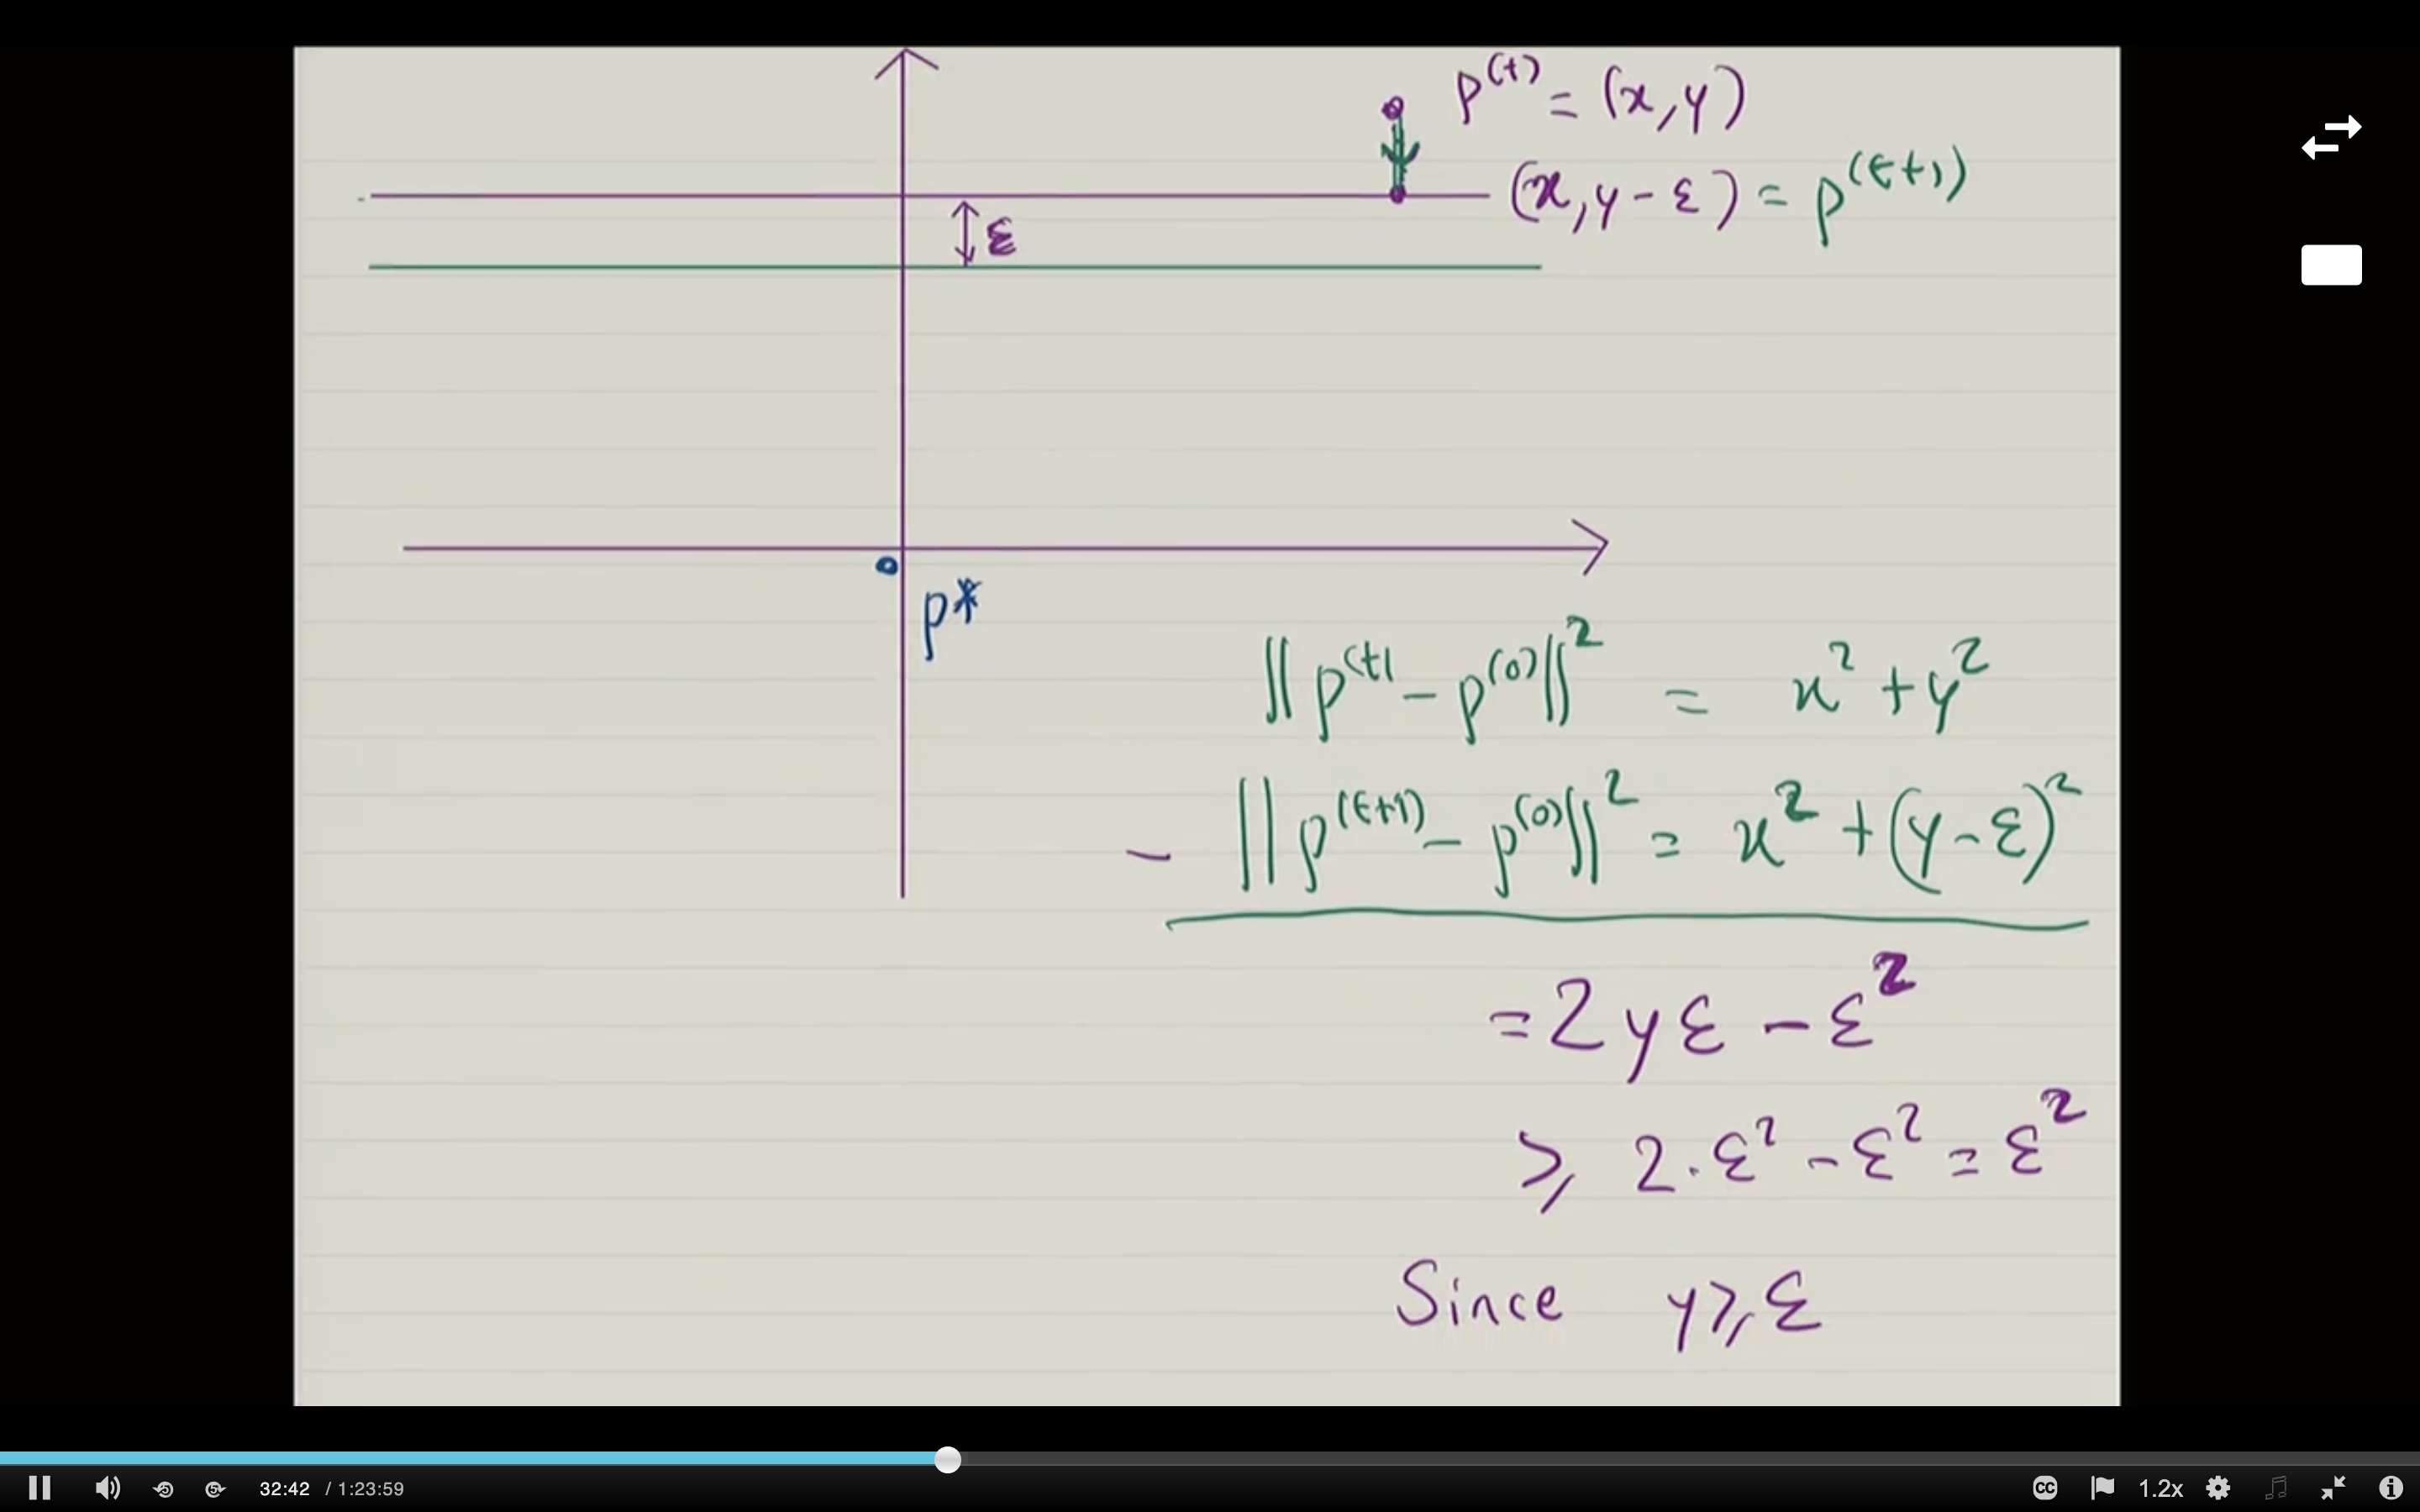 p^(t) = (x,y)
(x,y-ε) = p^(t+1)
ε
p*
||p^(t) - p^(0)||^2 = x^2 + y^2
- ||p^(t+1) - p^(0)||^2 = x^2 + (y-ε)^2
= 2yε - ε^2
⩾ 2·ε^2 - ε^2 = ε^2
Since y⩾ε
32:42 / 1:23:59
CC
1.2x